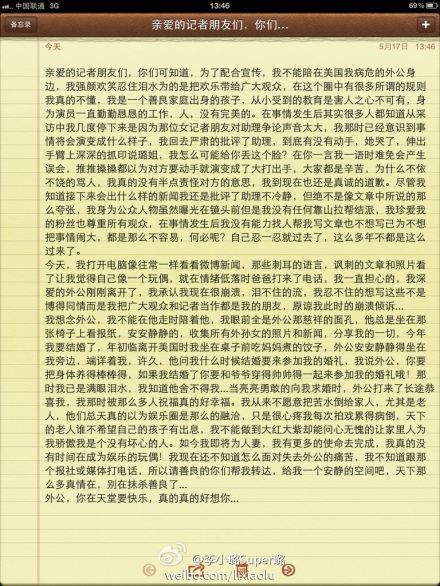 中国联通 3G 13:46 69%
备忘录 亲爱的记者朋友们，你们... +
今天 5月17日 13:46
亲爱的记者朋友们，你们可知道，为了配合宣传，我不能陪在美国我病危的外公身
边，我强颜欢笑忍住泪水为的是把欢乐带给广大观众，在这个圈中有很多所谓的规则
我真的不懂，我是一个善良家庭出身的孩子，从小受到的教育是害人之心不可有，身
为演员一直勤勤恳恳的工作，人，没有完美的。在事情发生后其实很多人都知道从采
访中我几度停下来是因为那位女记者朋友对助理争论声音太大，我那时已经意识到事
情将会演变成什么样子，我回去严肃的批评了助理，到底有没有动手，她哭了，伸出
手臂上深深的抓印说璐姐，我怎么可能给你丢这个脸？在你一言我一语时难免会产生
误会，推推搡搡都以为对方要动手就演变成了大打出手，大家都是辛苦，为什么不依
不饶的骂人，我真的没有半点责怪对方的意思，我到现在也还是真诚的道歉。尽管我
知道接下来会出什么样的新闻我还是批评了助理不冷静，但绝不是像文章中所说的那
么夸张，我身为公众人物虽然曝光在镜头前但是我没有任何靠山拉帮结派，我珍爱我
的粉丝也尊重所有观众，在事情发生后我没有能力找人帮我写文章也不想写已为不想
把事情闹大，都是那么不容易，何必呢？自己忍一忍就过去了，这么多年不都是这么
过来了。
今天，我打开电脑像往常一样看看微博新闻，那些刺耳的语言，讽刺的文章和照片看
了让我觉得自己像一个玩偶，就在情绪低落时爸爸打来了电话，我一直担心的，我深
爱的外公刚刚离开了，我承认我现在很崩溃，泪不住的流，我忍不住的想写这些不是
博得同情而是我把广大观众和记者当作都是我的朋友，原谅我此时的崩溃倾诉...
我想念外公，我不能在他走时陪着他，我眼前全是外公那慈祥的面孔，他总是坐在那
张椅子上看报纸，安安静静的，收集所有外孙女的照片和新闻，分享我的一切，今年
我要结婚了，年初临离开美国时我坐在桌子前吃妈妈煮的饺子，外公安安静静得坐在
我旁边，端详着我，许久，他问我什么时候结婚要来参加我的婚礼，我说外公，你要
把身体养得棒棒得，如果我结婚了你要和爷爷穿得帅帅得一起来参加我的婚礼哦！那
时我已是满眼泪水，我知道他舍不得我...当亮亮勇敢的向我求婚时，外公打来了长途恭
喜我，我那时被那么多人祝福真的好幸福。我从来不愿意把苦水倒给家人，尤其是老
人，他们总天真的以为娱乐圈是那么的融洽，只是很心疼我每次拍戏累得病倒，天下
的老人谁不希望自己的孩子有出息，我不能做到大红大紫却能问心无愧的让家里人为
我骄傲我是个没有坏心的人。如今我即将为人妻，我有更多的使命去完成，我真的没
有时间在成为娱乐的玩偶！我现在还不知道怎么面对失去外公的痛苦，我不知道跟那
个报社或媒体打电话，所以请善良的你们帮我转达，给我一个安静的空间吧，天下那
么多真情在，别在抹杀善良了...
外公，你在天堂要快乐，真的真的好想你...
@李小璐Super璐
weibo.com/lixiaolu